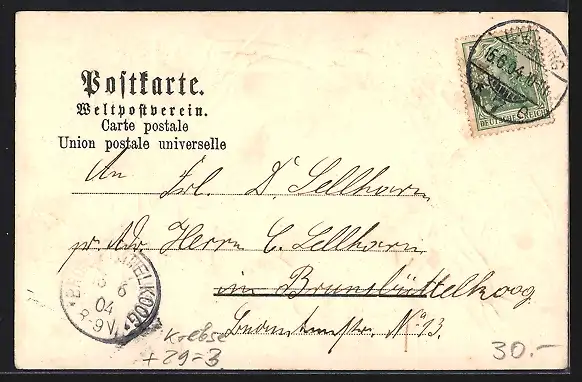 Postkarte.
Weltpostverein.
Carte postale
Union postale universelle
An Frl. D. Sellhorn
pr. Adr. Herrn C. Sellhorn
in Brunsbüttelkoog
No 13.
HAMBURG
15.6.04
DEUTSCHES REICH
BRUNSBÜTTELKOOG
6
04
8-9V
Krebse
+29=3
30.-